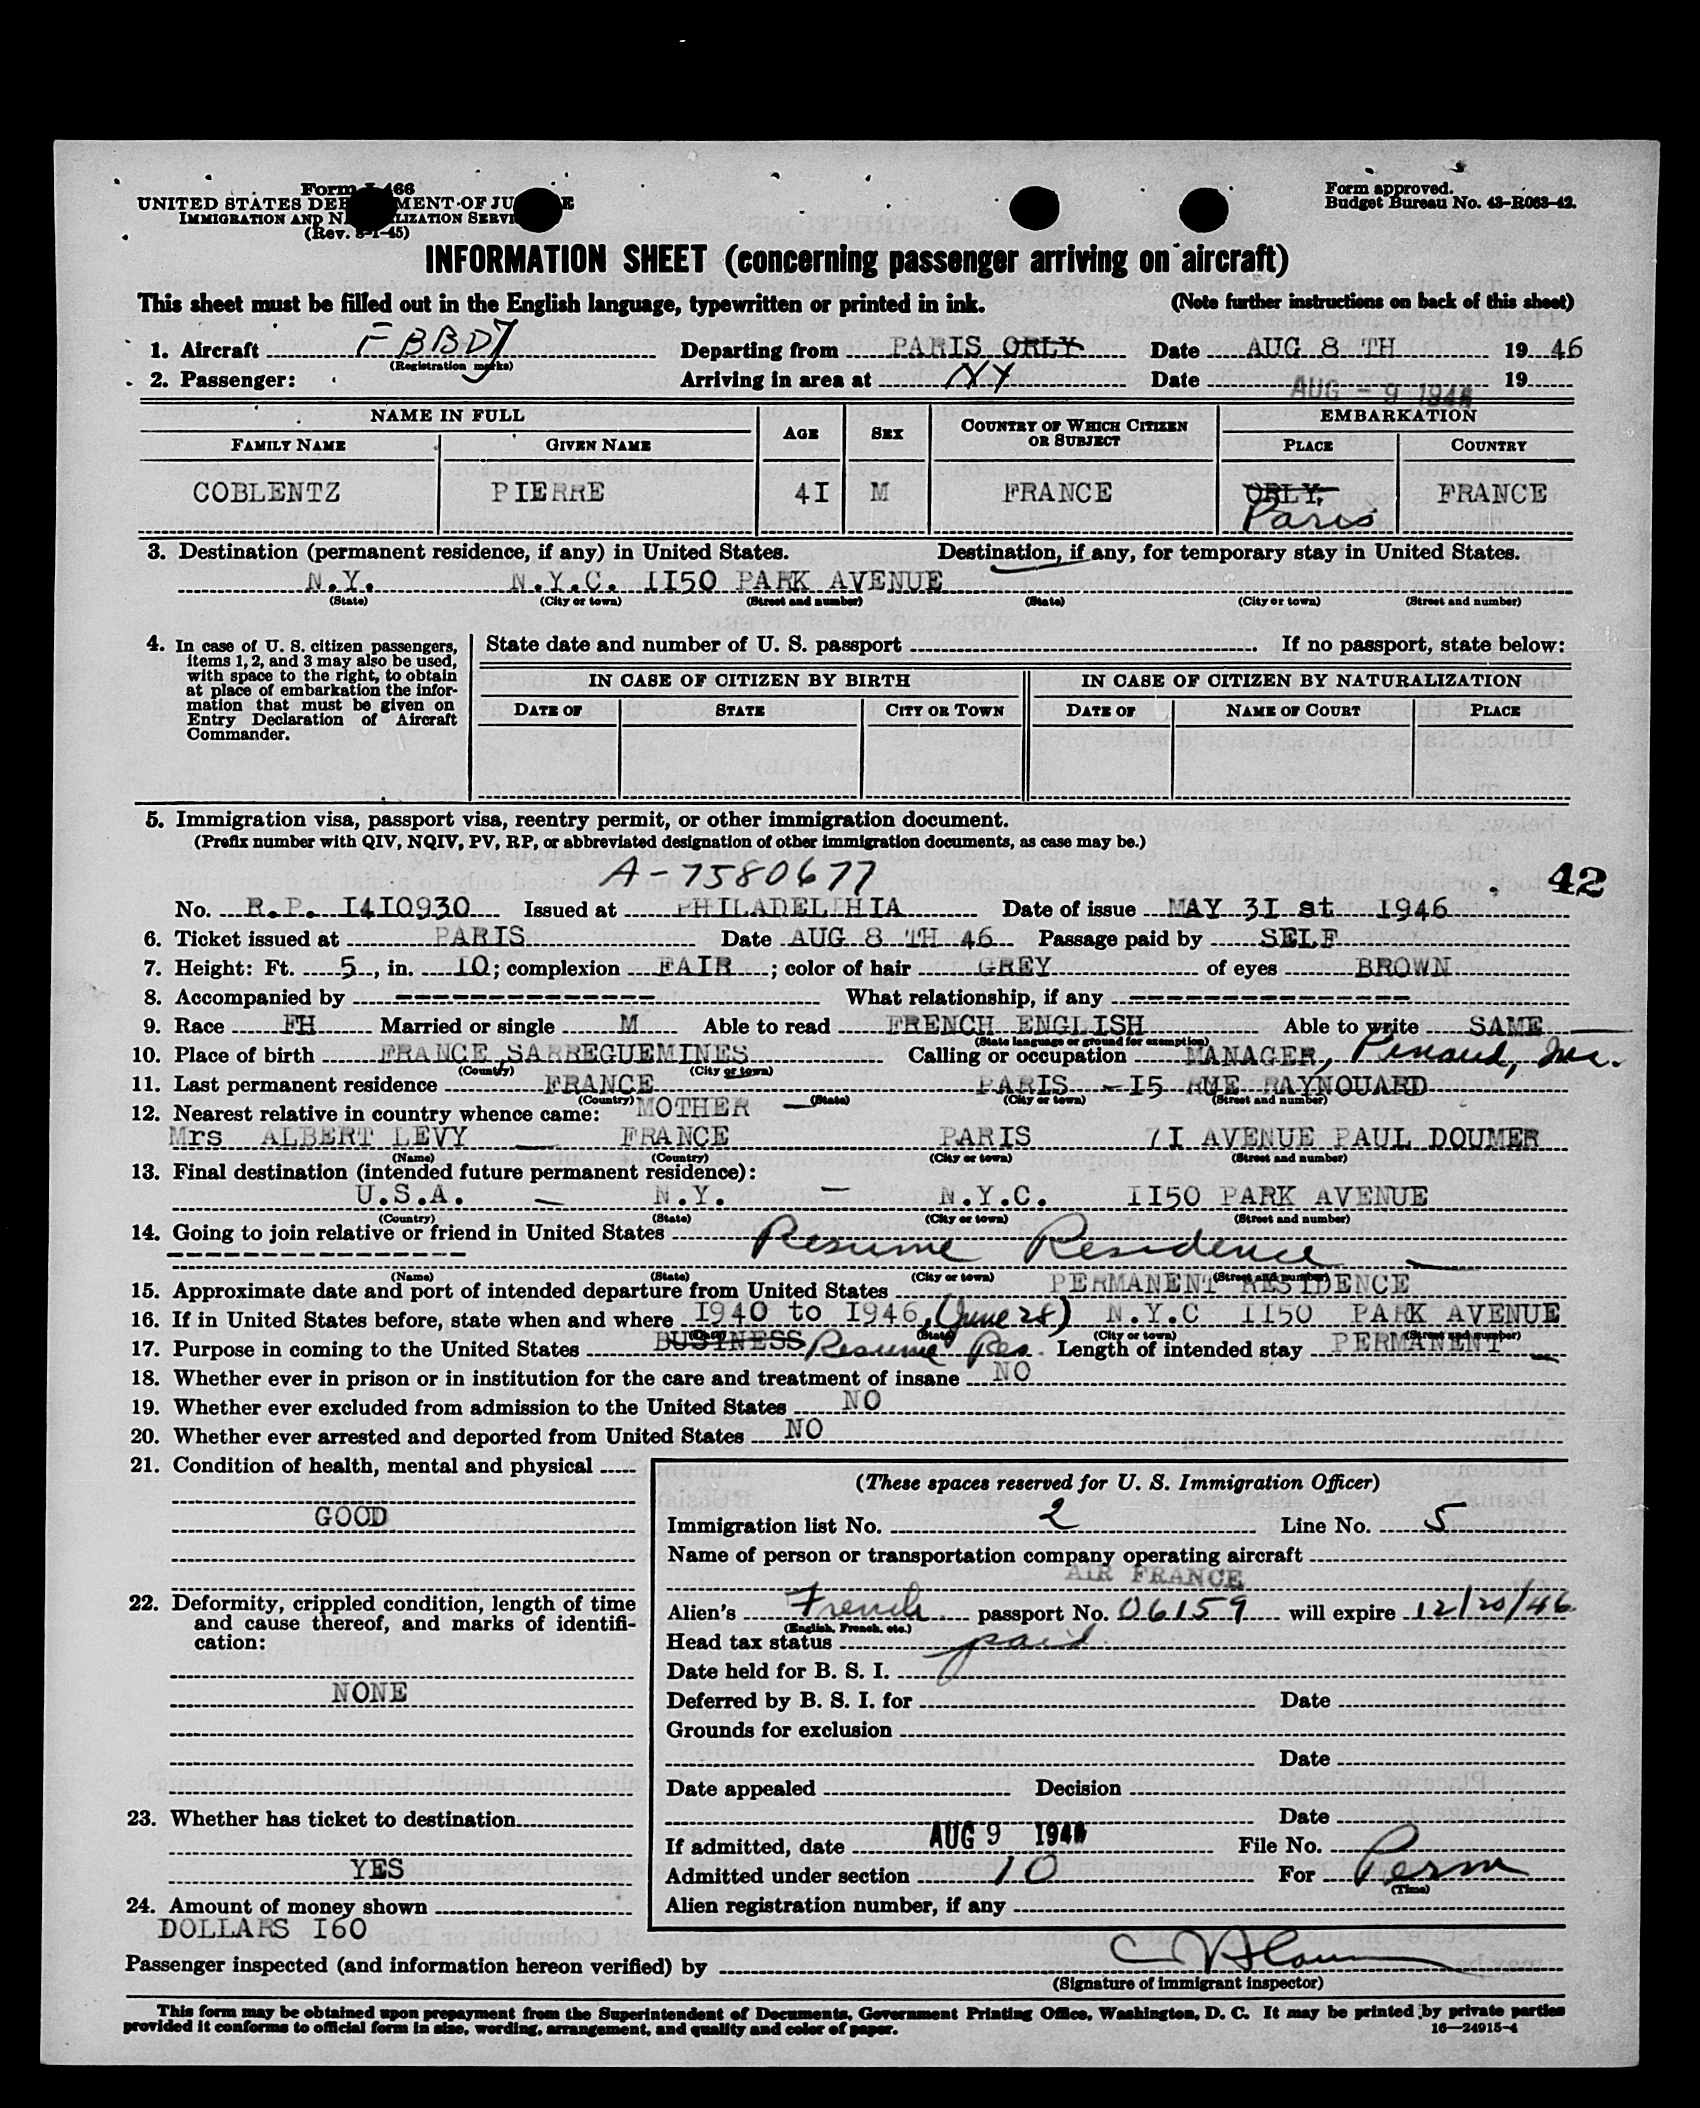 Form I-466
UNITED STATES DEPARTMENT OF JUSTICE
IMMIGRATION AND NATURALIZATION SERVICE
(Rev. 8-1-45)
Form approved.
Budget Bureau No. 43-R063-42.
INFORMATION SHEET (concerning passenger arriving on aircraft)
This sheet must be filled out in the English language, typewritten or printed in ink. (Note further instructions on back of this sheet)
1. Aircraft FBBDJ Departing from PARIS ORLY Date AUG 8 TH 19 46
(Registration marks)
2. Passenger: Arriving in area at NY Date AUG - 9 1946 19
NAME IN FULL AGE SEX COUNTRY OF WHICH CITIZEN OR SUBJECT EMBARKATION
FAMILY NAME GIVEN NAME PLACE COUNTRY
COBLENTZ PIERRE 4I M FRANCE ORLY, FRANCE
Paris
3. Destination (permanent residence, if any) in United States. Destination, if any, for temporary stay in United States.
N.Y. N.Y.C. II50 PARK AVENUE
(State) (City or town) (Street and number) (State) (City or town) (Street and number)
4. In case of U. S. citizen passengers, items 1, 2, and 3 may also be used, with space to the right, to obtain at place of embarkation the information that must be given on Entry Declaration of Aircraft Commander.
State date and number of U. S. passport If no passport, state below:
IN CASE OF CITIZEN BY BIRTH IN CASE OF CITIZEN BY NATURALIZATION
DATE OF STATE CITY OR TOWN DATE OF NAME OF COURT PLACE
5. Immigration visa, passport visa, reentry permit, or other immigration document.
(Prefix number with QIV, NQIV, PV, RP, or abbreviated designation of other immigration documents, as case may be.)
A-7580677 42
No. R.P. I4I0930 Issued at PHILADELIHIA Date of issue MAY 3I st I946
6. Ticket issued at PARIS Date AUG 8 TH 46 Passage paid by SELF
7. Height: Ft. 5, in. I0; complexion FAIR; color of hair GREY of eyes BROWN
8. Accompanied by -------------- What relationship, if any ---------------
9. Race FH Married or single M Able to read FRENCH ENGLISH Able to write SAME
(State language or ground for exemption)
10. Place of birth FRANCE, SARREGUEMINES Calling or occupation MANAGER, Pinaud, Inc.
(Country) (City or town)
11. Last permanent residence FRANCE PARIS - I5 RUE RAYNOUARD
(Country) (State) (City or town) (Street and number)
12. Nearest relative in country whence came: MOTHER
Mrs ALBERT LEVY FRANCE PARIS 7I AVENUE PAUL DOUMER
(Name) (Country) (City or town) (Street and number)
13. Final destination (intended future permanent residence):
U.S.A. N.Y. N.Y.C. II50 PARK AVENUE
(Country) (State) (City or town) (Street and number)
14. Going to join relative or friend in United States Resume Residence
----------------
(Name) (State) (City or town) (Street and number)
15. Approximate date and port of intended departure from United States PERMANENT RESIDENCE
16. If in United States before, state when and where I940 to I946, (June 28) N.Y.C II50 PARK AVENUE
(Date) (State) (City or town) (Street and number)
17. Purpose in coming to the United States BUSINESS Resume Res. Length of intended stay PERMANENT
18. Whether ever in prison or in institution for the care and treatment of insane NO
19. Whether ever excluded from admission to the United States NO
20. Whether ever arrested and deported from United States NO
21. Condition of health, mental and physical
GOOD
22. Deformity, crippled condition, length of time and cause thereof, and marks of identification:
NONE
23. Whether has ticket to destination
YES
24. Amount of money shown
DOLLARS I60
(These spaces reserved for U. S. Immigration Officer)
Immigration list No. 2 Line No. 5
Name of person or transportation company operating aircraft
AIR FRANCE
Alien's French passport No. 06159 will expire 12/20/46
(English, French, etc.)
Head tax status paid
Date held for B. S. I.
Deferred by B. S. I. for Date
Grounds for exclusion
Date
Date appealed Decision
Date
If admitted, date AUG 9 1946 File No.
Admitted under section 10 For Perm
(Time)
Alien registration number, if any
Passenger inspected (and information hereon verified) by
(Signature of immigrant inspector)
This form may be obtained upon prepayment from the Superintendent of Documents, Government Printing Office, Washington, D. C. It may be printed by private parties
provided it conforms to official form in size, wording, arrangement, and quality and color of paper. 16—24915-4